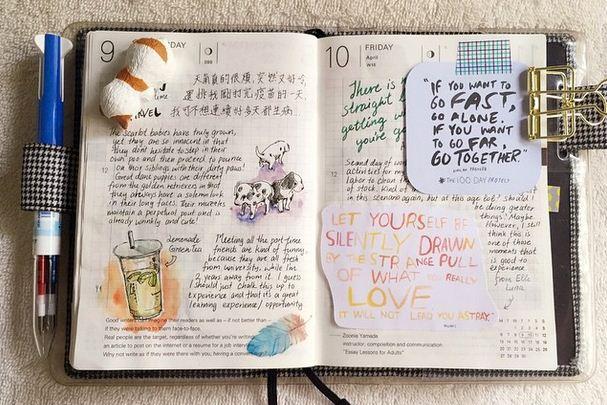 9
DAY
time
天氣真的很煩,突然又好冷,
還挑我剛打完疫苗的一天,
我可不想連續好多天都生病
The scarlet babies have truly grown,
yet they are so innocent in that
they don't hesitate to step in their
own poo and then proceed to pounce
on their siblings with their dirty paws!
Great dane puppies are different
from the golden retrievers in that
they always have a solemn look
in their long faces. Their muzzles
maintain a perpetual pout and is
already wrinkly and cute!
12
Lemonade
Green Tea
Meeting all the part-time
friends are kind of funny
because they are all fresh
from university, while I'm
years away from it. I guess
I should just chalk this up to
experience and that it's a great
learning experience/opportunity.
Good writers imagine their readers as well as – if not better than –
if they were talking to them face-to-face.
Real people are the target, regardless of whether you're writing
an article to post on the internet or a resume for a job interview.
Why not write as if they were there with you, having a conver
10
FRIDAY
April
W15
There is
straight
getting
you're
"IF YOU WANT TO
GO FAST,
GO ALONE.
IF YOU WANT
TO GO FAR,
GO TOGETHER."
#THE100DAYPROJECT
12
Second day of
activities for my
labor to
of stock. Kind of
in this scenario again, but at this age too? Should I
be doing greater
things? Maybe.
However, I still
think this is
one of those
moments that
is good to
experience
from Elle
Luna
LET YOURSELF BE
SILENTLY DRAWN
BY THE STRANGE PULL
OF WHAT YOU REALLY
LOVE
IT WILL NOT LEAD YOU ASTRAY.
RUMI
Zoonie Yamada
instructor, composition and communication
"Essay Lessons for Adults"